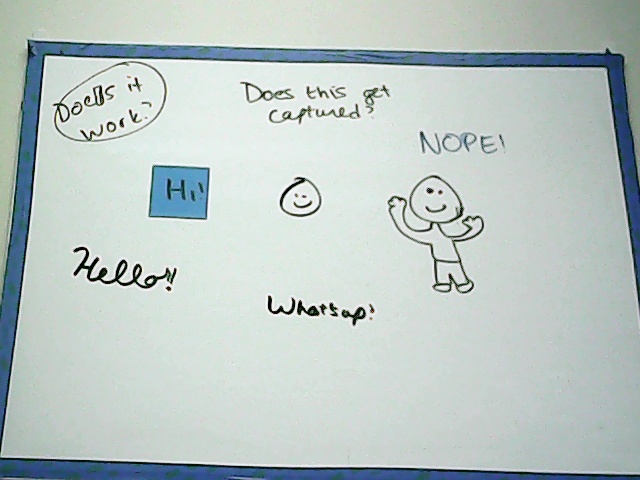 Does it
work?
Does this get
captured?
NOPE!
Hi!
Hello!!
Whatsap!